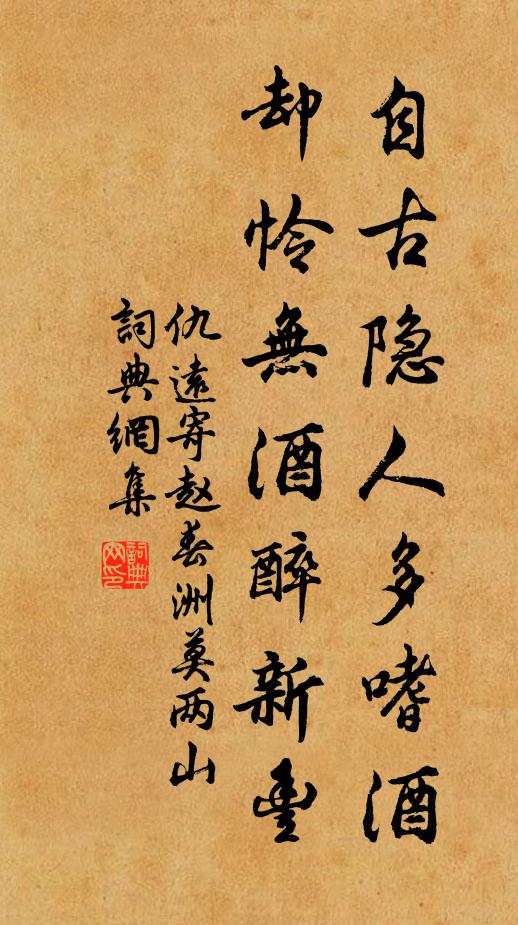 自古隐人多嗜酒
却怜無酒醉新豊
仇遠寄赵春洲莫两山
詞典網集
詞典网印